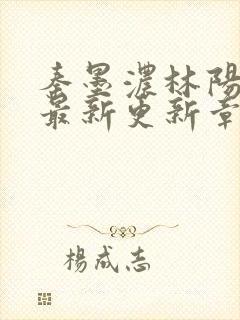 秦墨濃林陽
最新更新章
楊成志